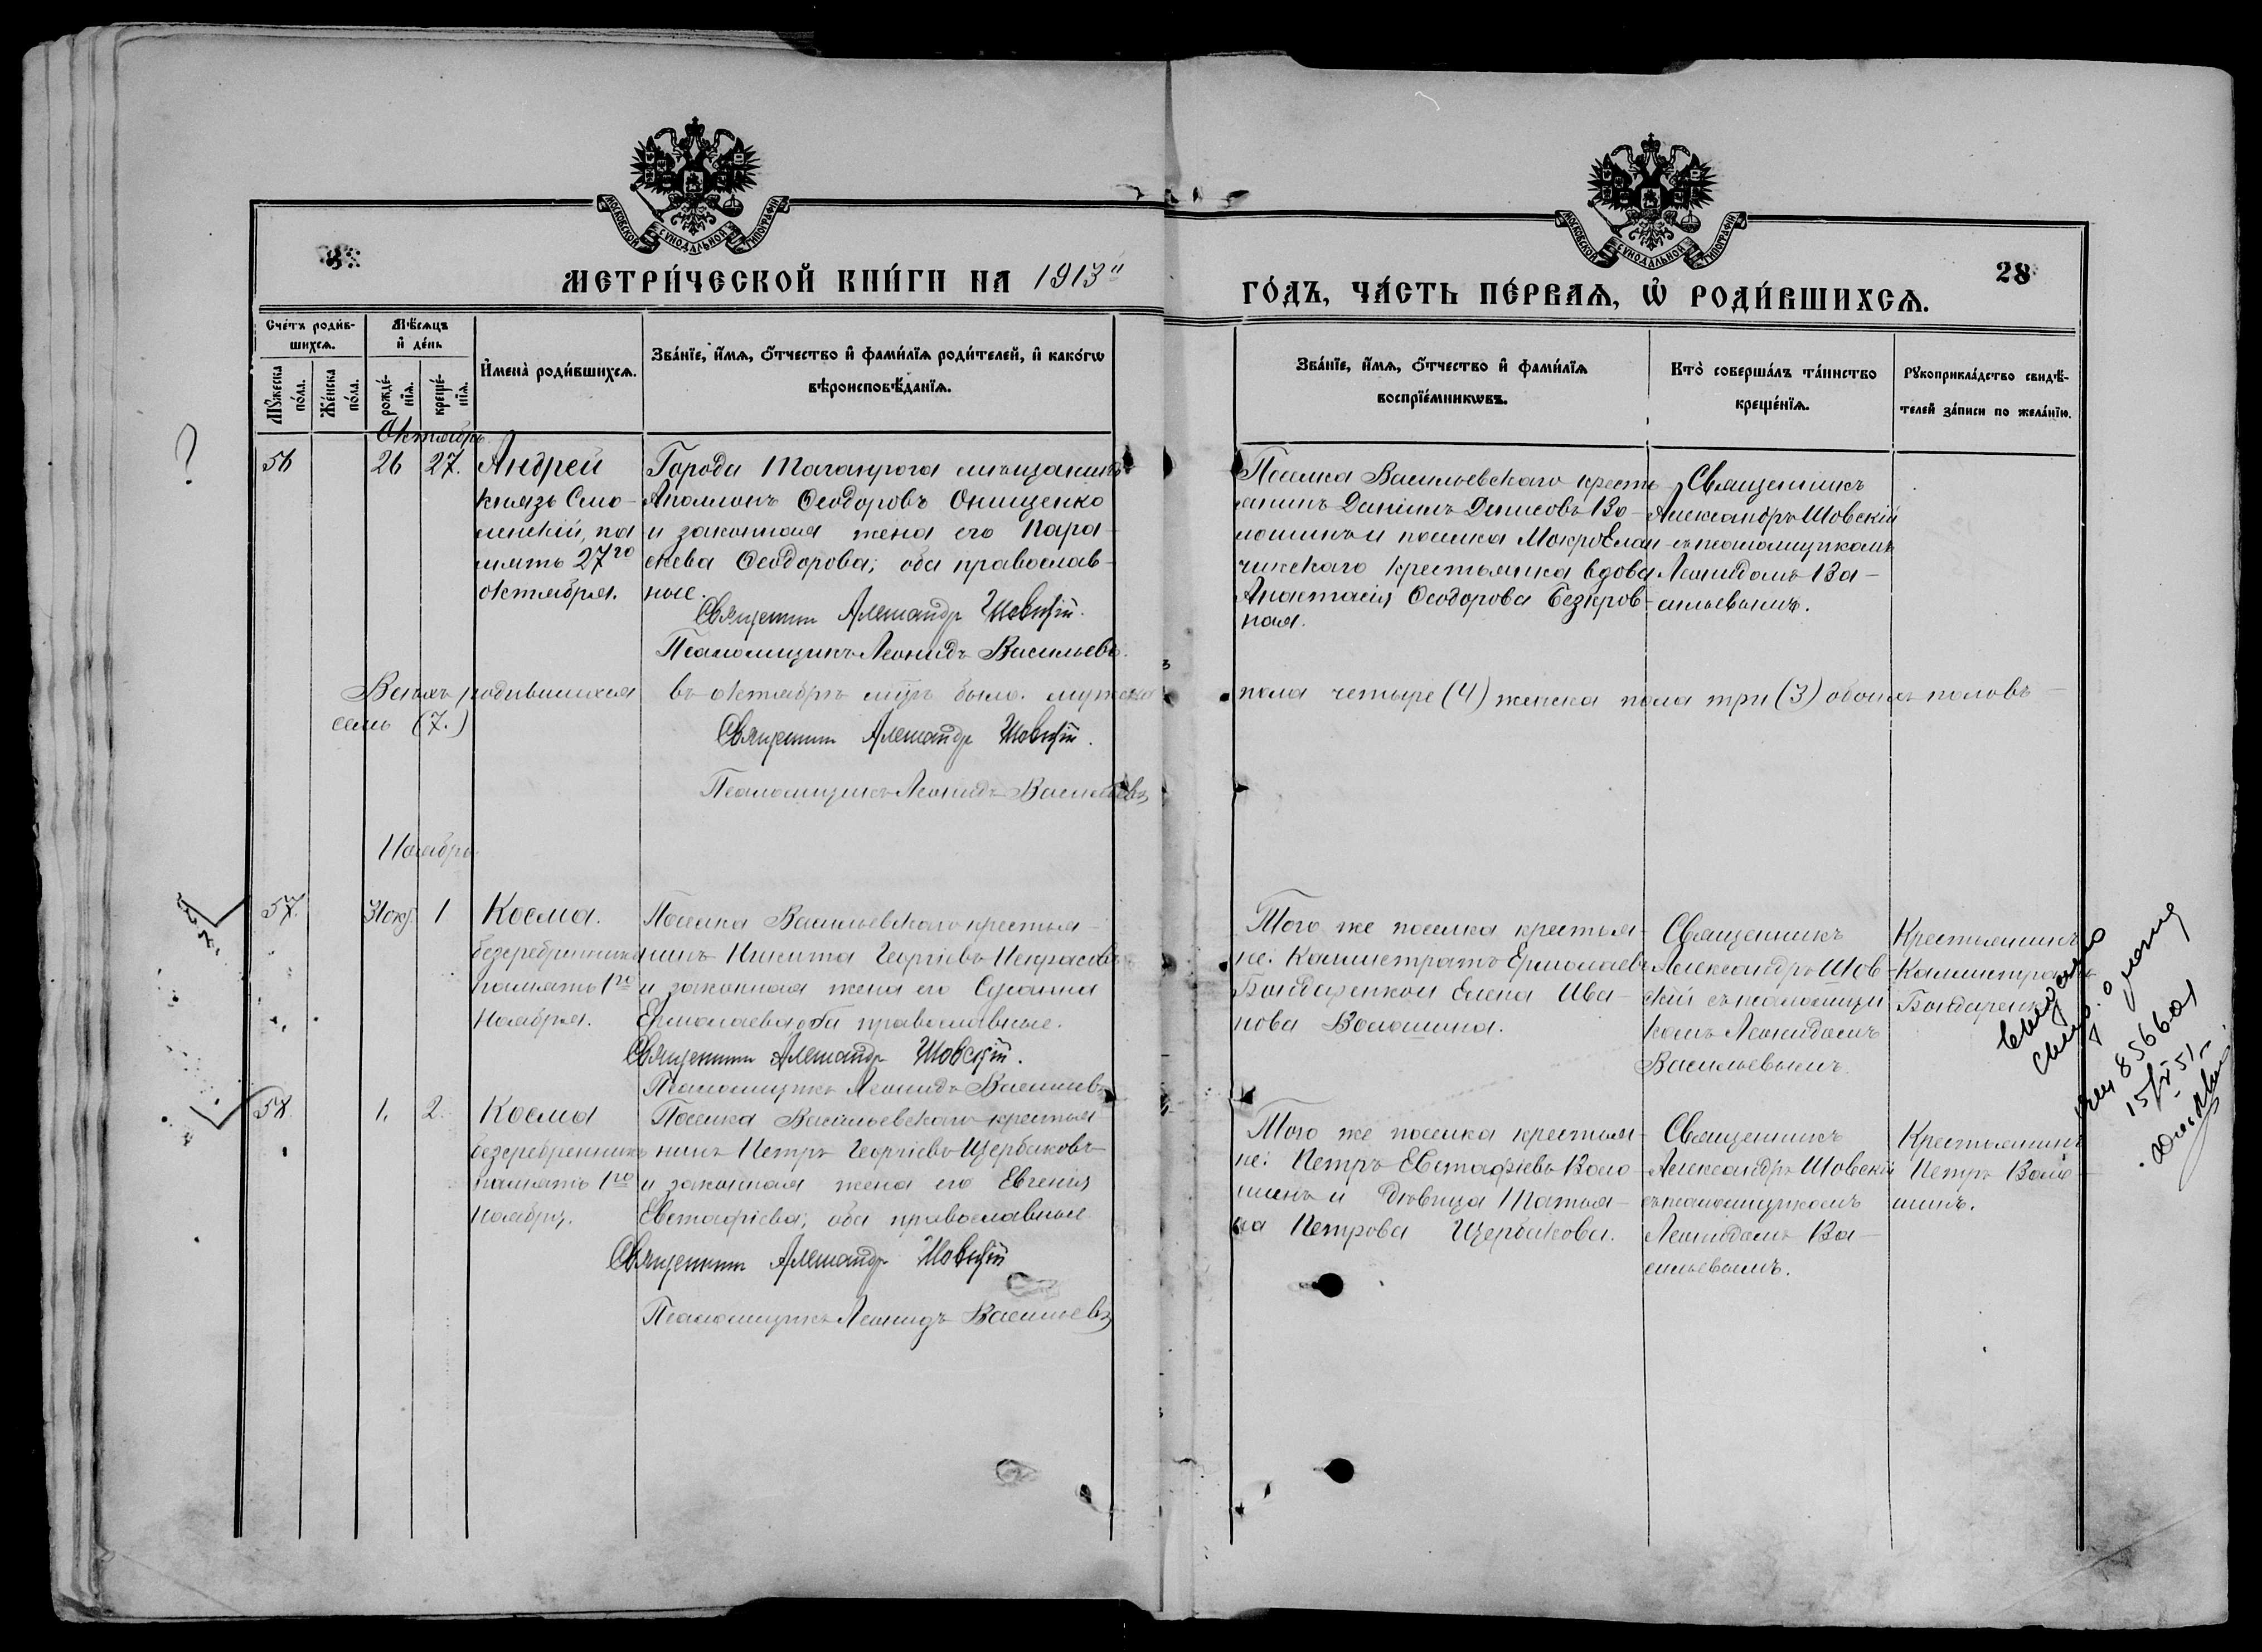 МОСКОВСКОЙ СѴНОДАЛЬНОЙ ТИПОГРАФІИ
МОСКОВСКОЙ СѴНОДАЛЬНОЙ ТИПОГРАФІИ
МЕТРИ́ЧЕСКОЙ КНИ́ГИ НА 1913
ГО́ДЪ, ЧА́СТЬ ПЕ́РВАѦ, Ѡ҆ РОДИ́ВШИХСѦ.
28
Сче́тъ роди́в-
шихсѧ.
Мѣ́сѧцъ
и҆ де́нь
Мꙋ́жеска
по́ла.
Же́нска
по́ла.
рожде́-
нїѧ.
креще́-
нїѧ.
И҆мена̀ роди́вшихсѧ.
Зва́нїе, и҆́мѧ, о҆́тчество и҆ фами́лїѧ роди́телей, и҆ како́гѡ
вѣроисповѣ́данїѧ.
Зва́нїе, и҆́мѧ, о҆́тчество и҆ фами́лїѧ
воспрїе́мникѡвъ.
Кто̀ соверша́лъ та́инство
креще́нїѧ.
Рꙋкоприкла́дство свидѣ́-
телей за́писи по жела́нїю.
Октябрь
?
56
26
27.
Андрей
князь Смо-
ленскій, па
мять 27го
октября.
Города Таганрога мѣщанинъ
Аполлонъ Ѳеодоровъ Онищенко
и законная жена его Пара-
скева Ѳеодорова; оба православ-
ные.
Священникъ Александръ Шовскій.
Псаломщикъ Леонидъ Васильевъ.
Поселка Васильевскаго кресть
янинъ Даніилъ Денисовъ Во-
лошинъ и поселка МокроЕлан
чикскаго крестьянка вдова
Анастасія Ѳеодорова Безкров-
ная.
Священникъ
Александръ Шовскій
съ псаломщикомъ
Леонидомъ Ва-
сильевымъ.
Всѣхъ родившихся въ октябрѣ мцѣ было: мужска пола четыре (4) женска пола три (3) обоихъ половъ
семь (7.)
Священникъ Александръ Шовскій.
Псаломщикъ Леонидъ Васильевъ
Ноябрь
57.
31 окт.
1
Косма.
безсребренникъ
память 1го
Ноября.
Поселка Васильевскаго крестья-
нинъ Никита Георгіевъ Некрасовъ
и законная жена его Сусанна
Ермолаева, оба православные.
Священникъ Александръ Шовскій.
Псаломщикъ Леонидъ Васильевъ
Того же поселка крестья-
не: Каллистратъ Ермолаевъ
Бондаренко и Елена Ива-
нова Волошина.
Священникъ
Александръ Шов-
скій съ псаломщи
комъ Леонидомъ
Васильевымъ.
Крестьянинъ
Каллистратъ
Бондаренко
58.
1.
2.
Косма
безсребренникъ
память 1го
ноября.
Поселка Васильевскаго крестья
нинъ Петръ Георгіевъ Щербаковъ
и законная жена его Евгенія
Евстафіева; оба православные
Священникъ Александръ Шовскій
Псаломщикъ Леонидъ Васильевъ
Того же поселка крестья-
не: Петръ Евстафіевъ Воло
шинъ и дѣвица Татья-
на Петрова Щербакова.
Священникъ
Александръ Шовскій
съ псаломщикомъ
Леонидомъ Ва-
сильевымъ.
Крестьянинъ
Петръ Воло
шинъ.
856601